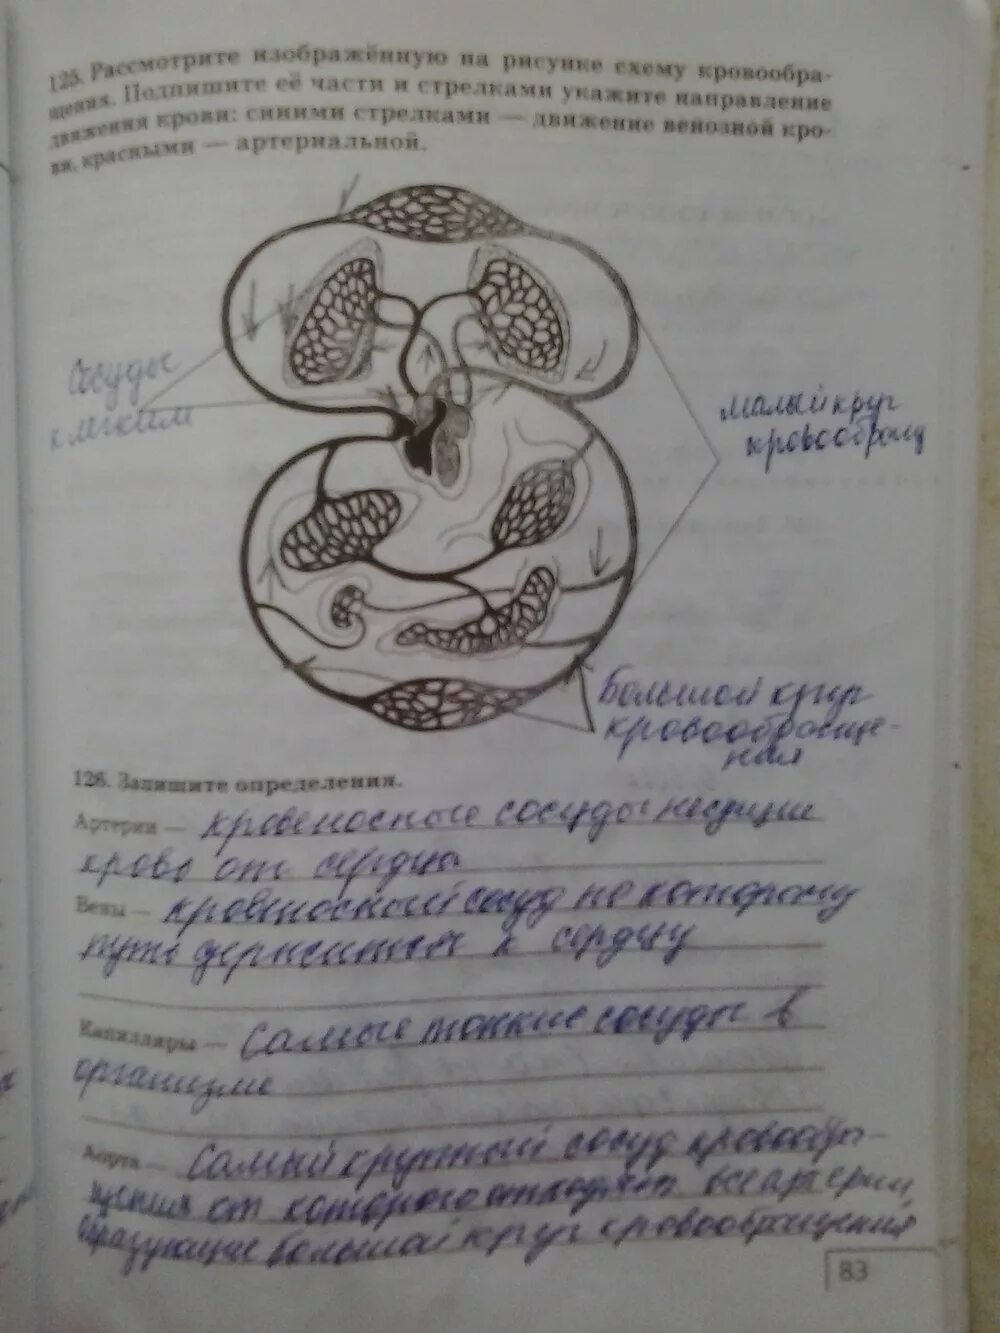 125. Рассмотрите изображённую на рисунке схему кровообра-
щения. Подпишите её части и стрелками укажите направление
движения крови: синими стрелками — движение венозной кро-
ви, красными — артериальной.
Сосуды
к легким
малый круг
кровообращ
Большой круг
кровообраще-
ния
126. Запишите определения.
Артерии — кровеносные сосуды несущие
кровь от сердца
Вены — кровеносный сосуд по которому
путь к сердцу
Капилляры — Самые тонкие сосуды в
организме
Аорта — Самый крупный сосуд кровообра-
щения от которого отходят все артерии,
образующие большой круг кровообращения
83